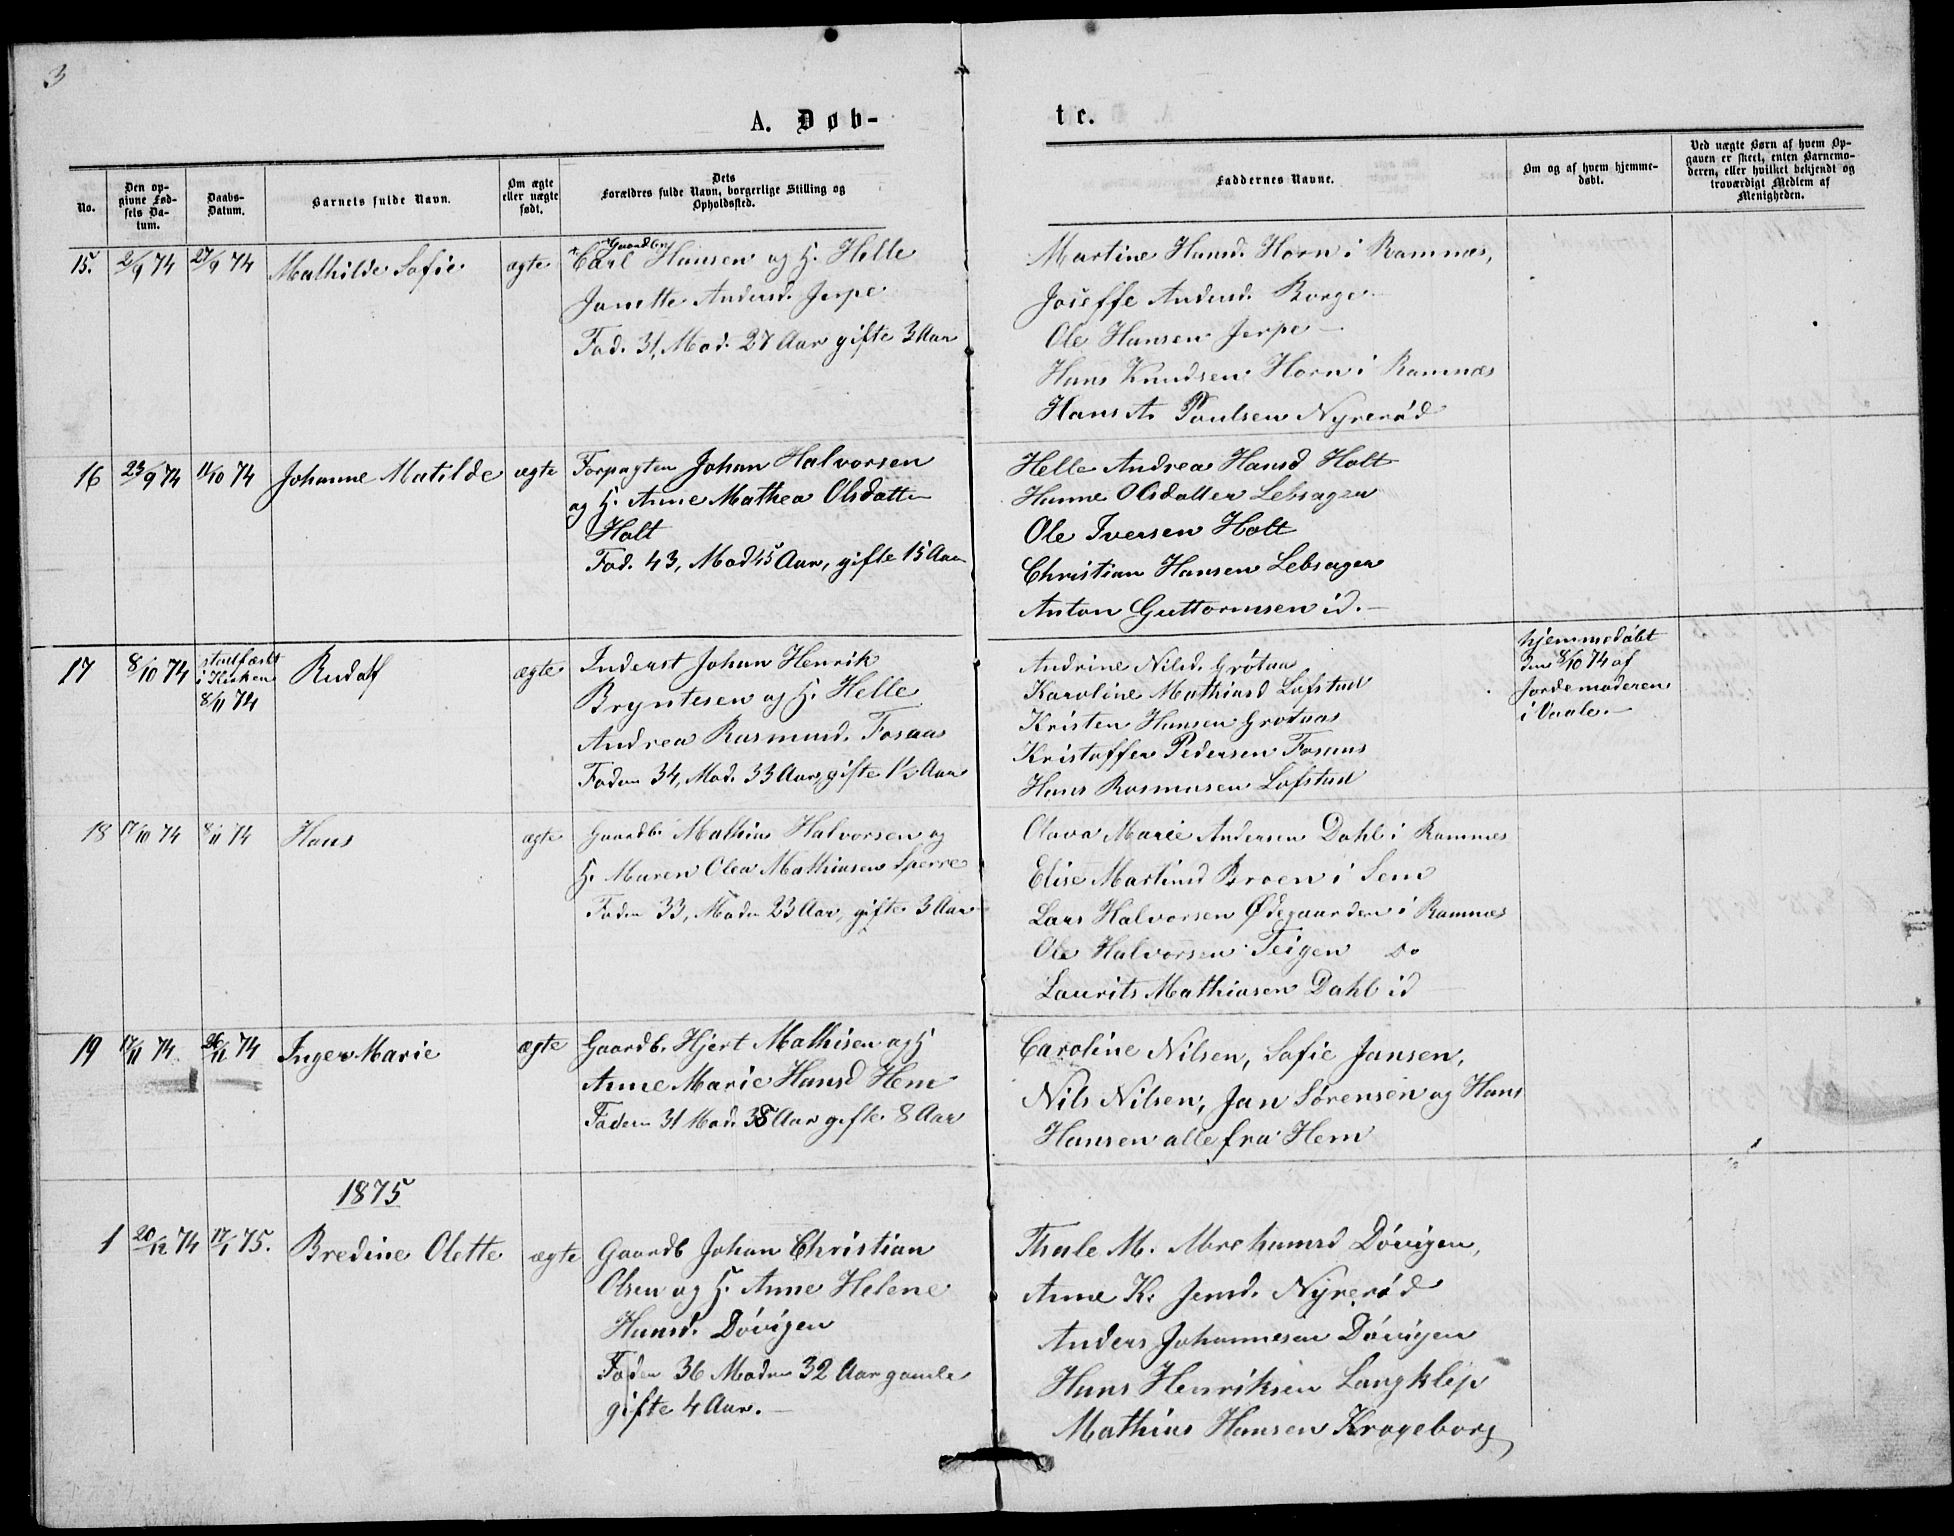 3
A. Døb-
te.
No.
Den op-
givne Fød-
sels Da-
tum.
Daabs-
Datum.
Barnets fulde Navn.
Om ægte
eller uægte
født.
Dets
Forældres fulde Navn, borgerlige Stilling og
Opholdssted.
Faddernes Navne.
Om og af hvem hjemme-
døbt.
Ved uægte Børn af hvem Op-
gaven er skeet, enten Barnemo-
deren, eller hvilket bekjendt og
troværdigt Medlem af
Menigheden.
15. 2/9 74 27/9 74 Mathilde Sofie ægte Gaardbr.
Carl Hansen og H. Helle
Janette Andersd. Jerpe
Fad. 31, Mod. 27 Aar gifte 3 Aar
Martine Hansd. Horn i Ramnæs,
Joseffe Andersd. Borge
Ole Hansen Jerpe
Hans Knudsen Horn i Ramnæs
Hans A. Poulsen Nyrerød
16 23/9 74 11/10 74 Johanne Matilde ægte Forpagter Johan Halvorsen
og H. Anne Mathea Olsdatter
Holt
Fad. 43, Mod 45 Aar, gifte 15 Aar
Helle Andrea Hansd Holt
Hanne Olsdatter Lebsager
Ole Iversen Holt
Christian Hansen Lebsager
Anton Guttormsen id.
17 8/10 74 stadfæst
i Kirken
8/11 74
Rudolf ægte Inderst Johan Henrik
Bryntesen og H. Helle
Andrea Rasmusd. Fosaas
Faderen 34, Mod. 33 Aar, gifte 1½ Aar
Andrine Nilsd. Grøtaas
Karoline Mathiasd Løfstad
Kristen Hansen Grøtaas
Kristoffer Pedersen Fosaas
Hans Rasmusen Løfstad
hjemmedøbt
den 8/10 74 af
Jordemoderen
i Vaale.
18 17/10 74 8/11 74 Hans ægte Gaardb. Mathias Halvorsen og
H. Maren Olea Mathiasen Sperre
Faderen 33, Moderen 23 Aar, gifte 3 Aar
Olava Marie Andersen Dahl i Ramnæs
Elise Martinsd Broen i Sem
Lars Halvorsen Ødegaarden i Ramnæs
Ole Halvorsen Teigen Do
Laurits Mathiasen Dahl id
19 17/11 74 26/12 74 Inger Marie ægte Gaardb. Hjert Mathisen og H
Anne Marie Hansd Hem
Faderen 31 Mod. 38 Aar gifte 8 Aar
Caroline Nilsen, Sofie Jansen,
Nils Nilsen, Jan Sørensen og Hans
Hansen alle fra Hem
1875
1 20/12 74 17/1 75. Bredine Olette ægte Gaardb Johan Christian
Olsen og H. Anne Helene
Hansd. Døvigen
Faderen 36 Moderen 32 Aar gamle
gifte 4 Aar.
Thale M. Abrahamsd Døvigen,
Anne K. Jensd. Nyrerød
Anders Johannesen Døvigen
Hans Henriksen Langklep
Mathias Hansen Krageborg